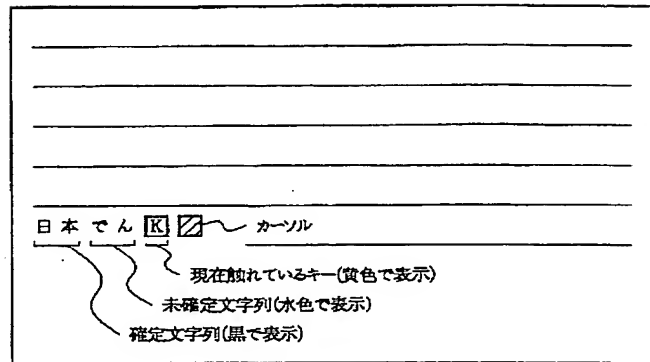 日本 でん K カーソル
現在触れているキー(黄色で表示)
未確定文字列(水色で表示)
確定文字列(黒で表示)